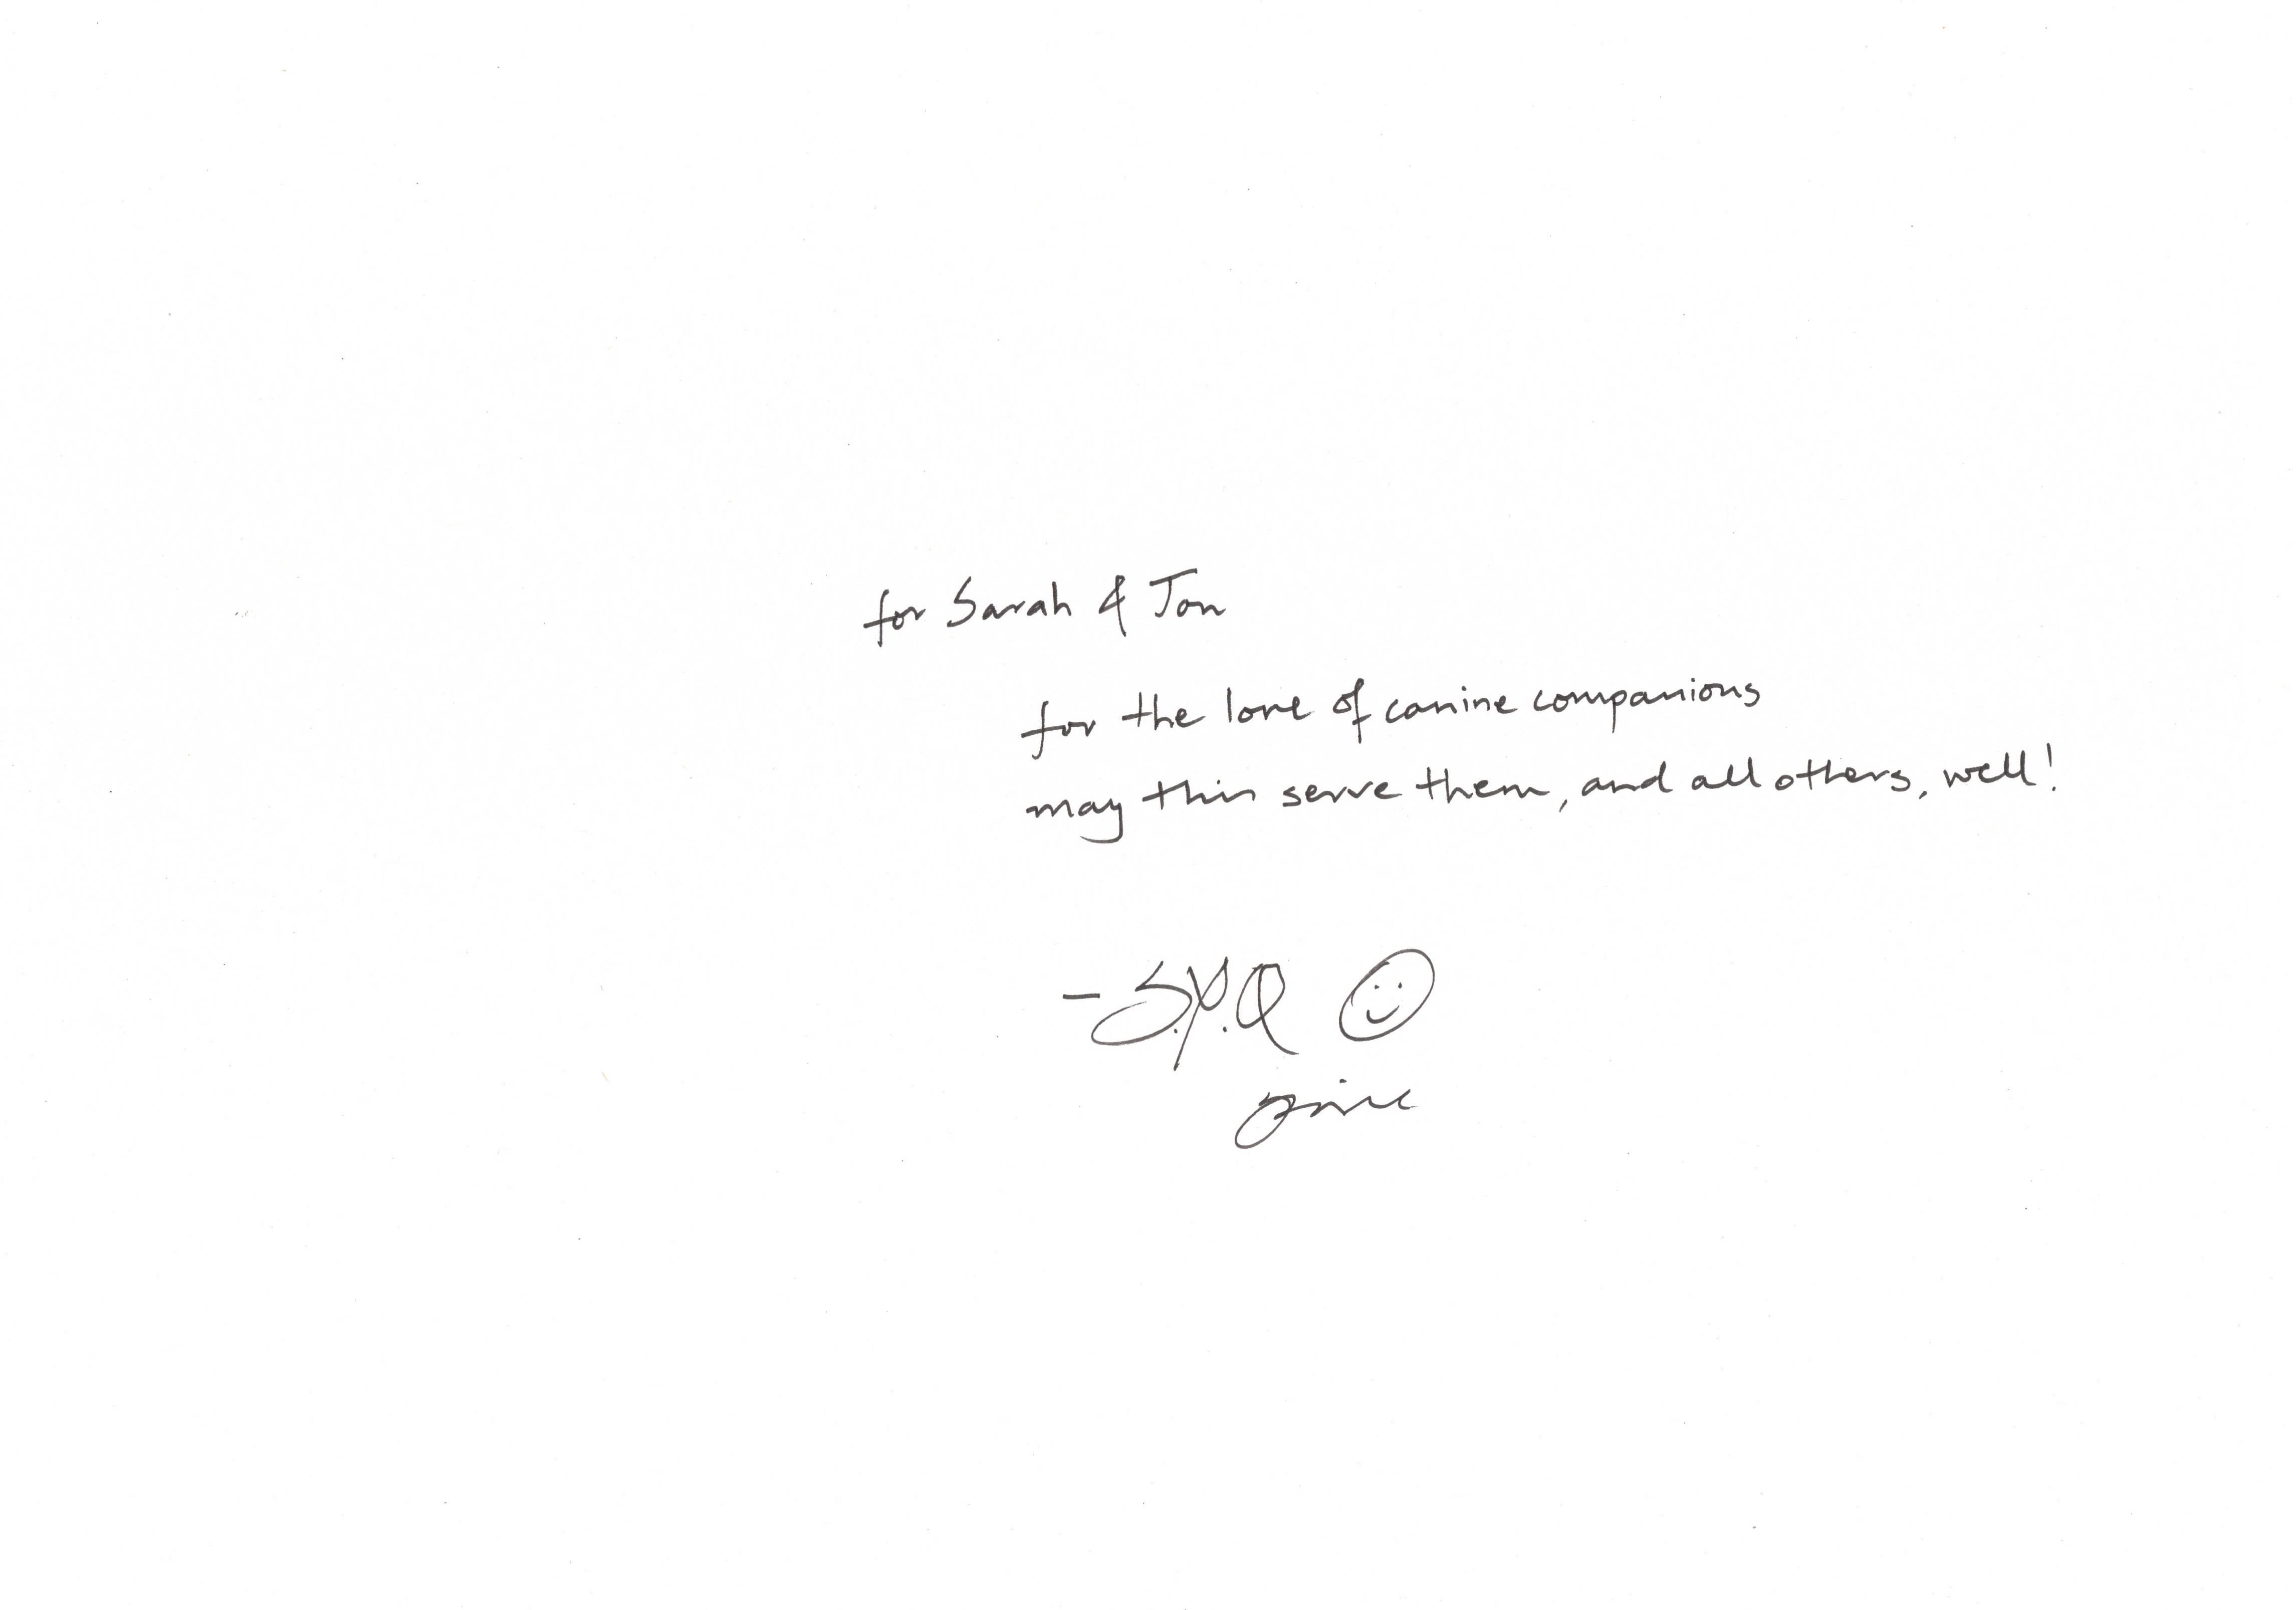 for Sarah & Jon
for the love of canine companions
may this serve them, and all others, well!
- S.P.Q